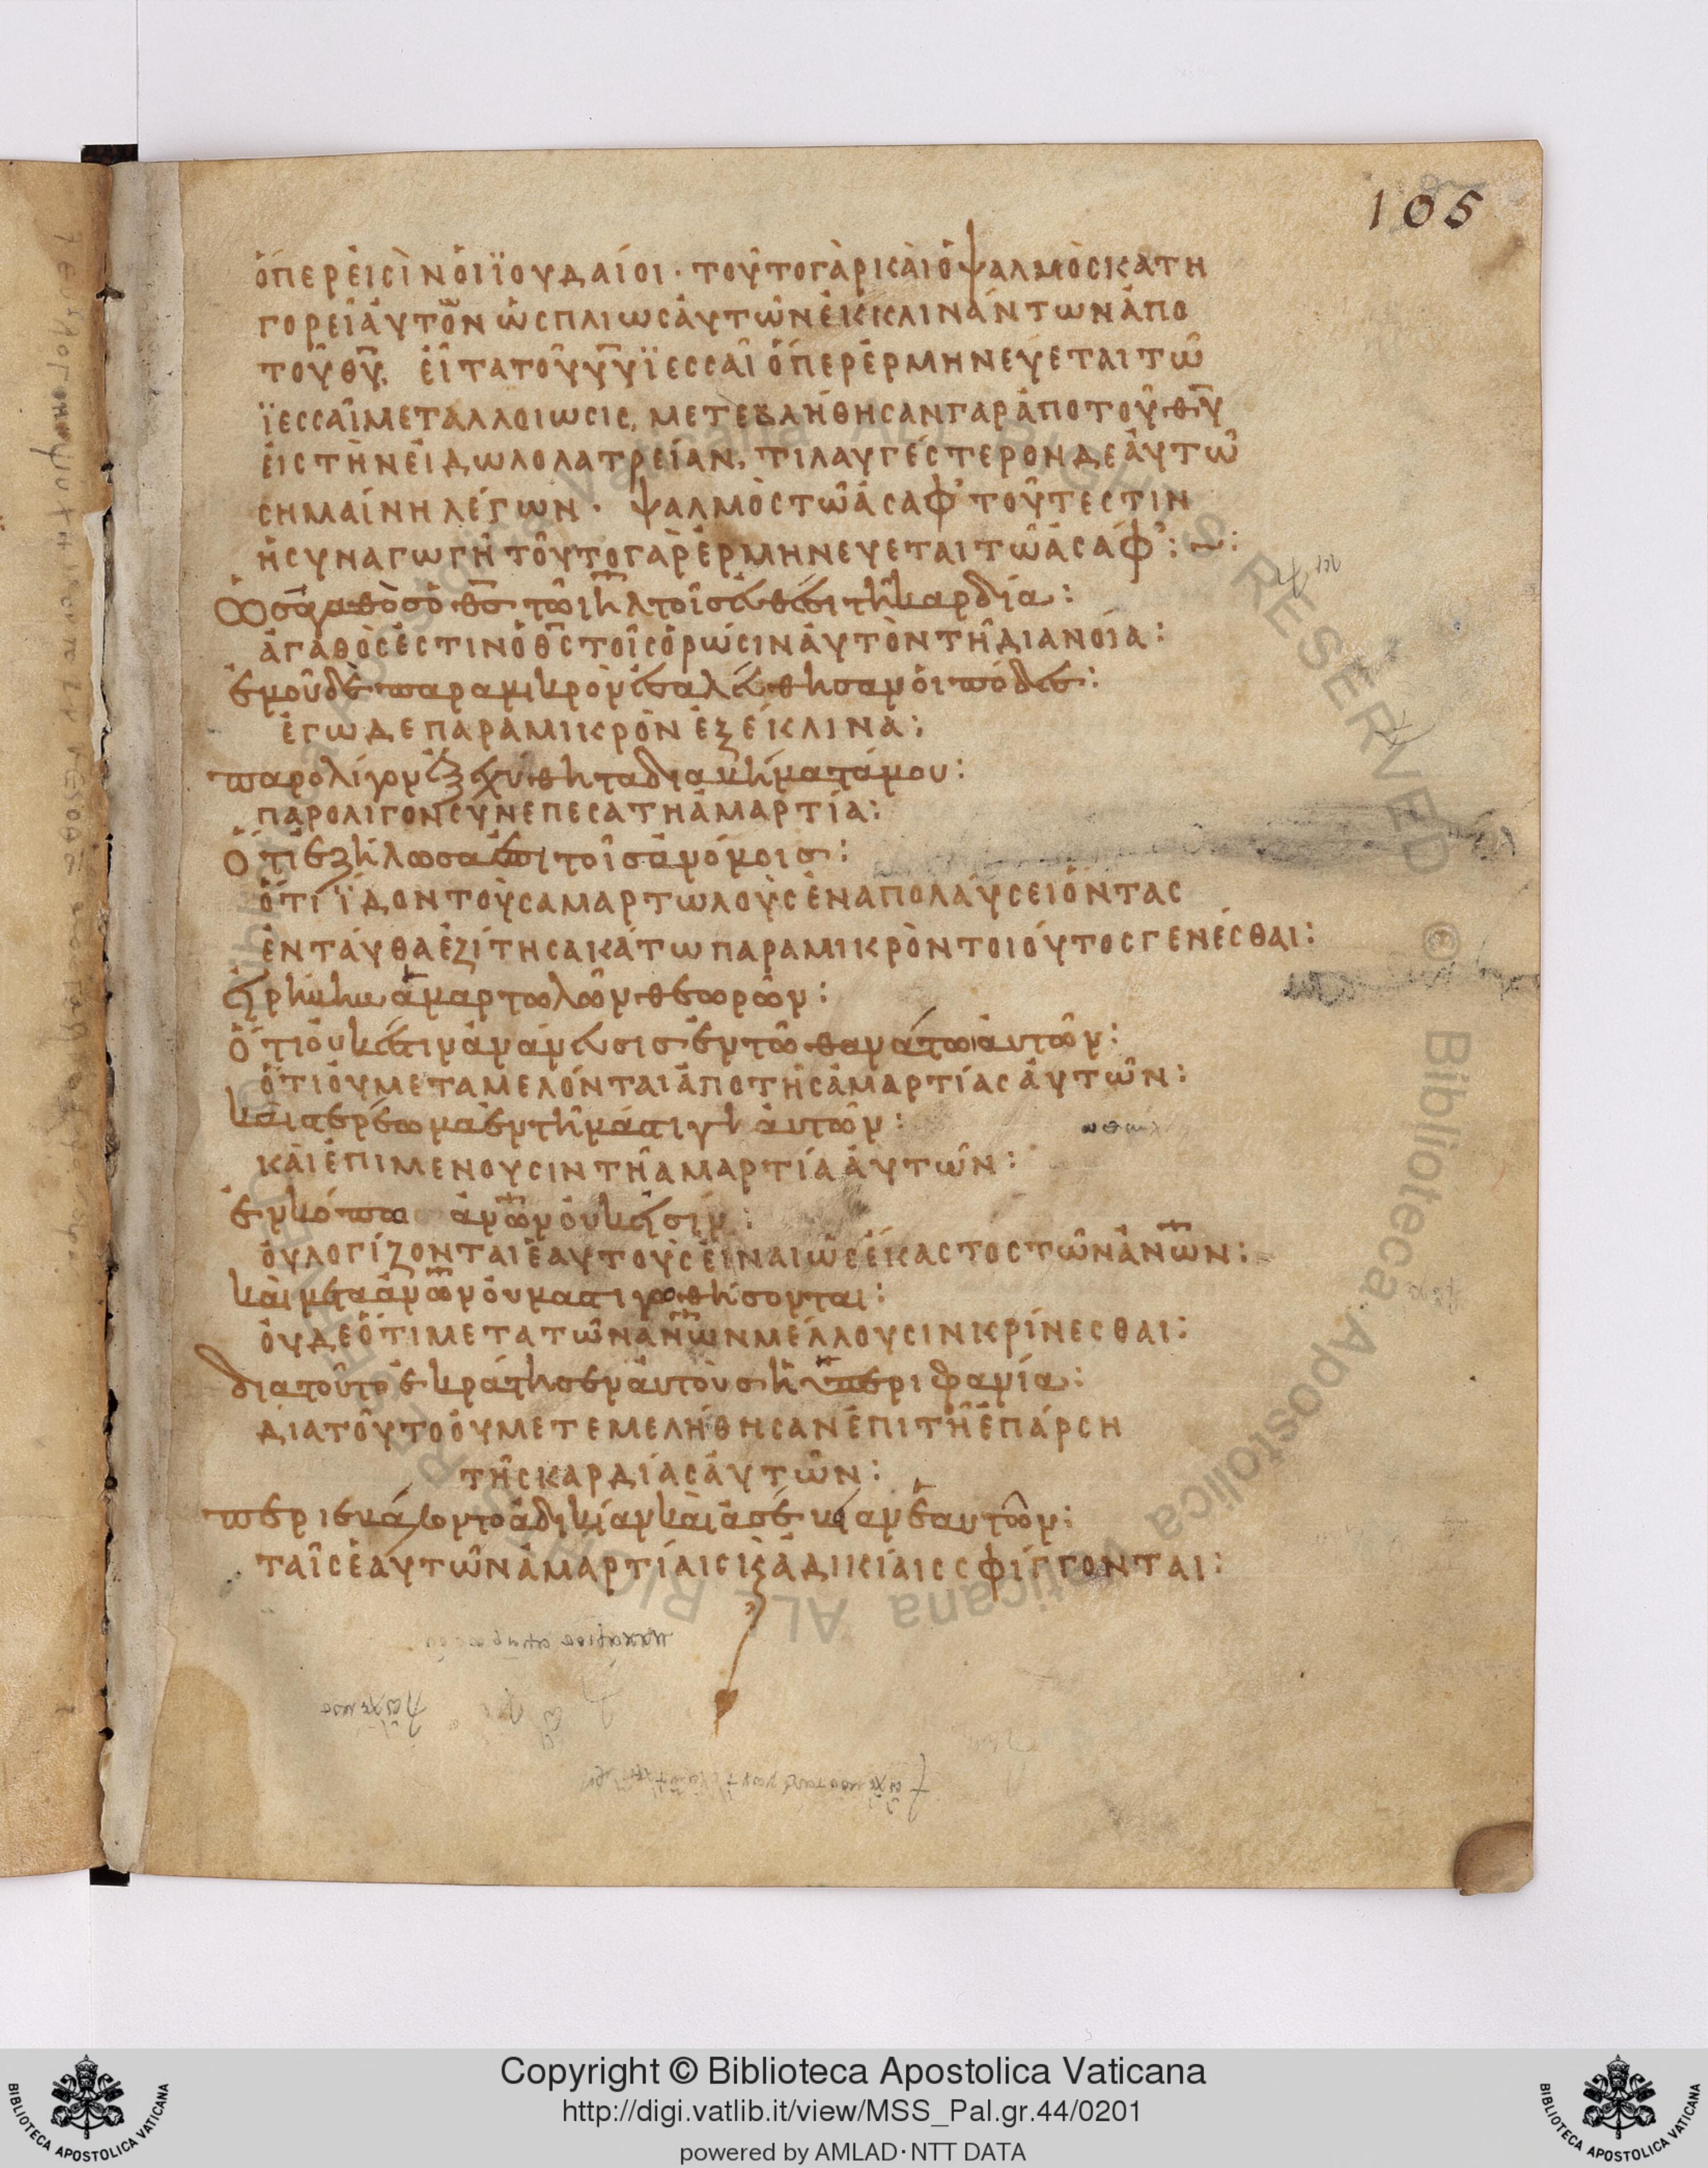 105
ὅπερ ἐισὶν ὁι ϊουδαίοι · τοῦτο γὰρ κὰι ὁ ψαλμὸς κατη
γορεῖ ἀυτὸν ὡς πλιως ἀυτῶν ἐκκλινάντων ἀπο
τοῦ θῦ, εἶτα τοῦ ϋϋ ϊεσσαῖ ὅπερ ἑρμηνεύεται τῶ
ϊεσσαῖ μεταλλοιωσις, μετεβλήθησαν γαρ ἀπο τοῦ θῦ
ἐις τὴν ἐιδωλολατρείαν, τιλαυγέστερον δε ἀυτῶ
σημαίνη λέγων · ψαλμὸς τῶ ἀσαφ τοῦτεστιν
ἡ συναγωγὴ τοῦτο γὰρ ἑρμηνευεται τῶ ἀσάφ : ~ :
Ὡς ἀγαθὸς ὁ θς τῶ ιηλ τοῖς ἐυθέσι τῆ καρδία :
ἀγαθὸς ἐστιν ὁ θς τοῖς ὁρώσιν ἀυτὸν τῆ διανοία :
ἐμοῦ δὲ παραμικρὸν ἐσαλέυθησαν ὁι πόδες :
ἐγω δε παραμικρὸν ἐξέκλινα :
παρολίγον ἐξεχύθη τα διαβήματά μου :
παρολιγον συνεπεσα τη ἁμαρτία :
Ὅτι ἐζήλωσα ἐπι τοῖς ἀνόμοις :
ὅτί ϊδον τοὺς αμαρτωλοὺς ἐν απολάυσει ὄντας
ἐντάυθα ἐζίτησα κάτω παραμικρὸν τοιούτος γενέσθαι :
ἐιρήνην ἁμαρτωλῶν θεωρῶν :
Ὅτι ὀυκ ἔστιν ἀνάνευσις ἐν τῶ θανάτω ἀυτῶν :
ὅτι ὀυ μεταμελόνται ἀπο τῆς ἁμαρτίας ἀυτῶν :
κὰι στερέωμα ἐν τῆ μάστιγη ἀυτῶν :
κὰι ἐπιμενουσιν τῆ αμαρτία ἀυτῶν :
ἐν κόποις ἀνων ὀυκ ἐισίν :
ὀυ λογίζονται ἑαυτοὺς ἐιναι ὡς ἑκαστος τῶν ἀνων :
κὰι μετα ἀνων ὀυ μαστιγωθήσονται :
ὀυδε ὅτι μετα τῶν ανων μέλλουσιν κρίνεσθαι :
δια τοῦτο ἐκράτησεν ἀυτοὺς ἡ ὑπεριφανία :
δια τοῦτο ὀυ μετεμελήθησαν ἐπι τῆ ἐπάρση
τῆς καρδίας ἀυτῶν :
περιεβάλοντο ἀδικίαν κὰι ἀσέβιαν ἑαυτῶν :
ταῖς ἑαυτῶν ἁμαρτίαις κ ἀδικίαις σφίγγονται :
Copyright © Biblioteca Apostolica Vaticana
http://digi.vatlib.it/view/MSS_Pal.gr.44/0201
powered by AMLAD·NTT DATA
BIBLIOTECA APOSTOLICA VATICANA
BIBLIOTECA APOSTOLICA VATICANA
Biblioteca Apostolica Vaticana ALL RIGHTS RESERVED ©